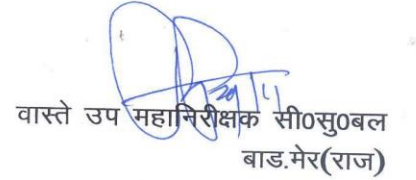 वास्ते उप महानिरीक्षक सी०सु०बल
बाड.मेर(राज)